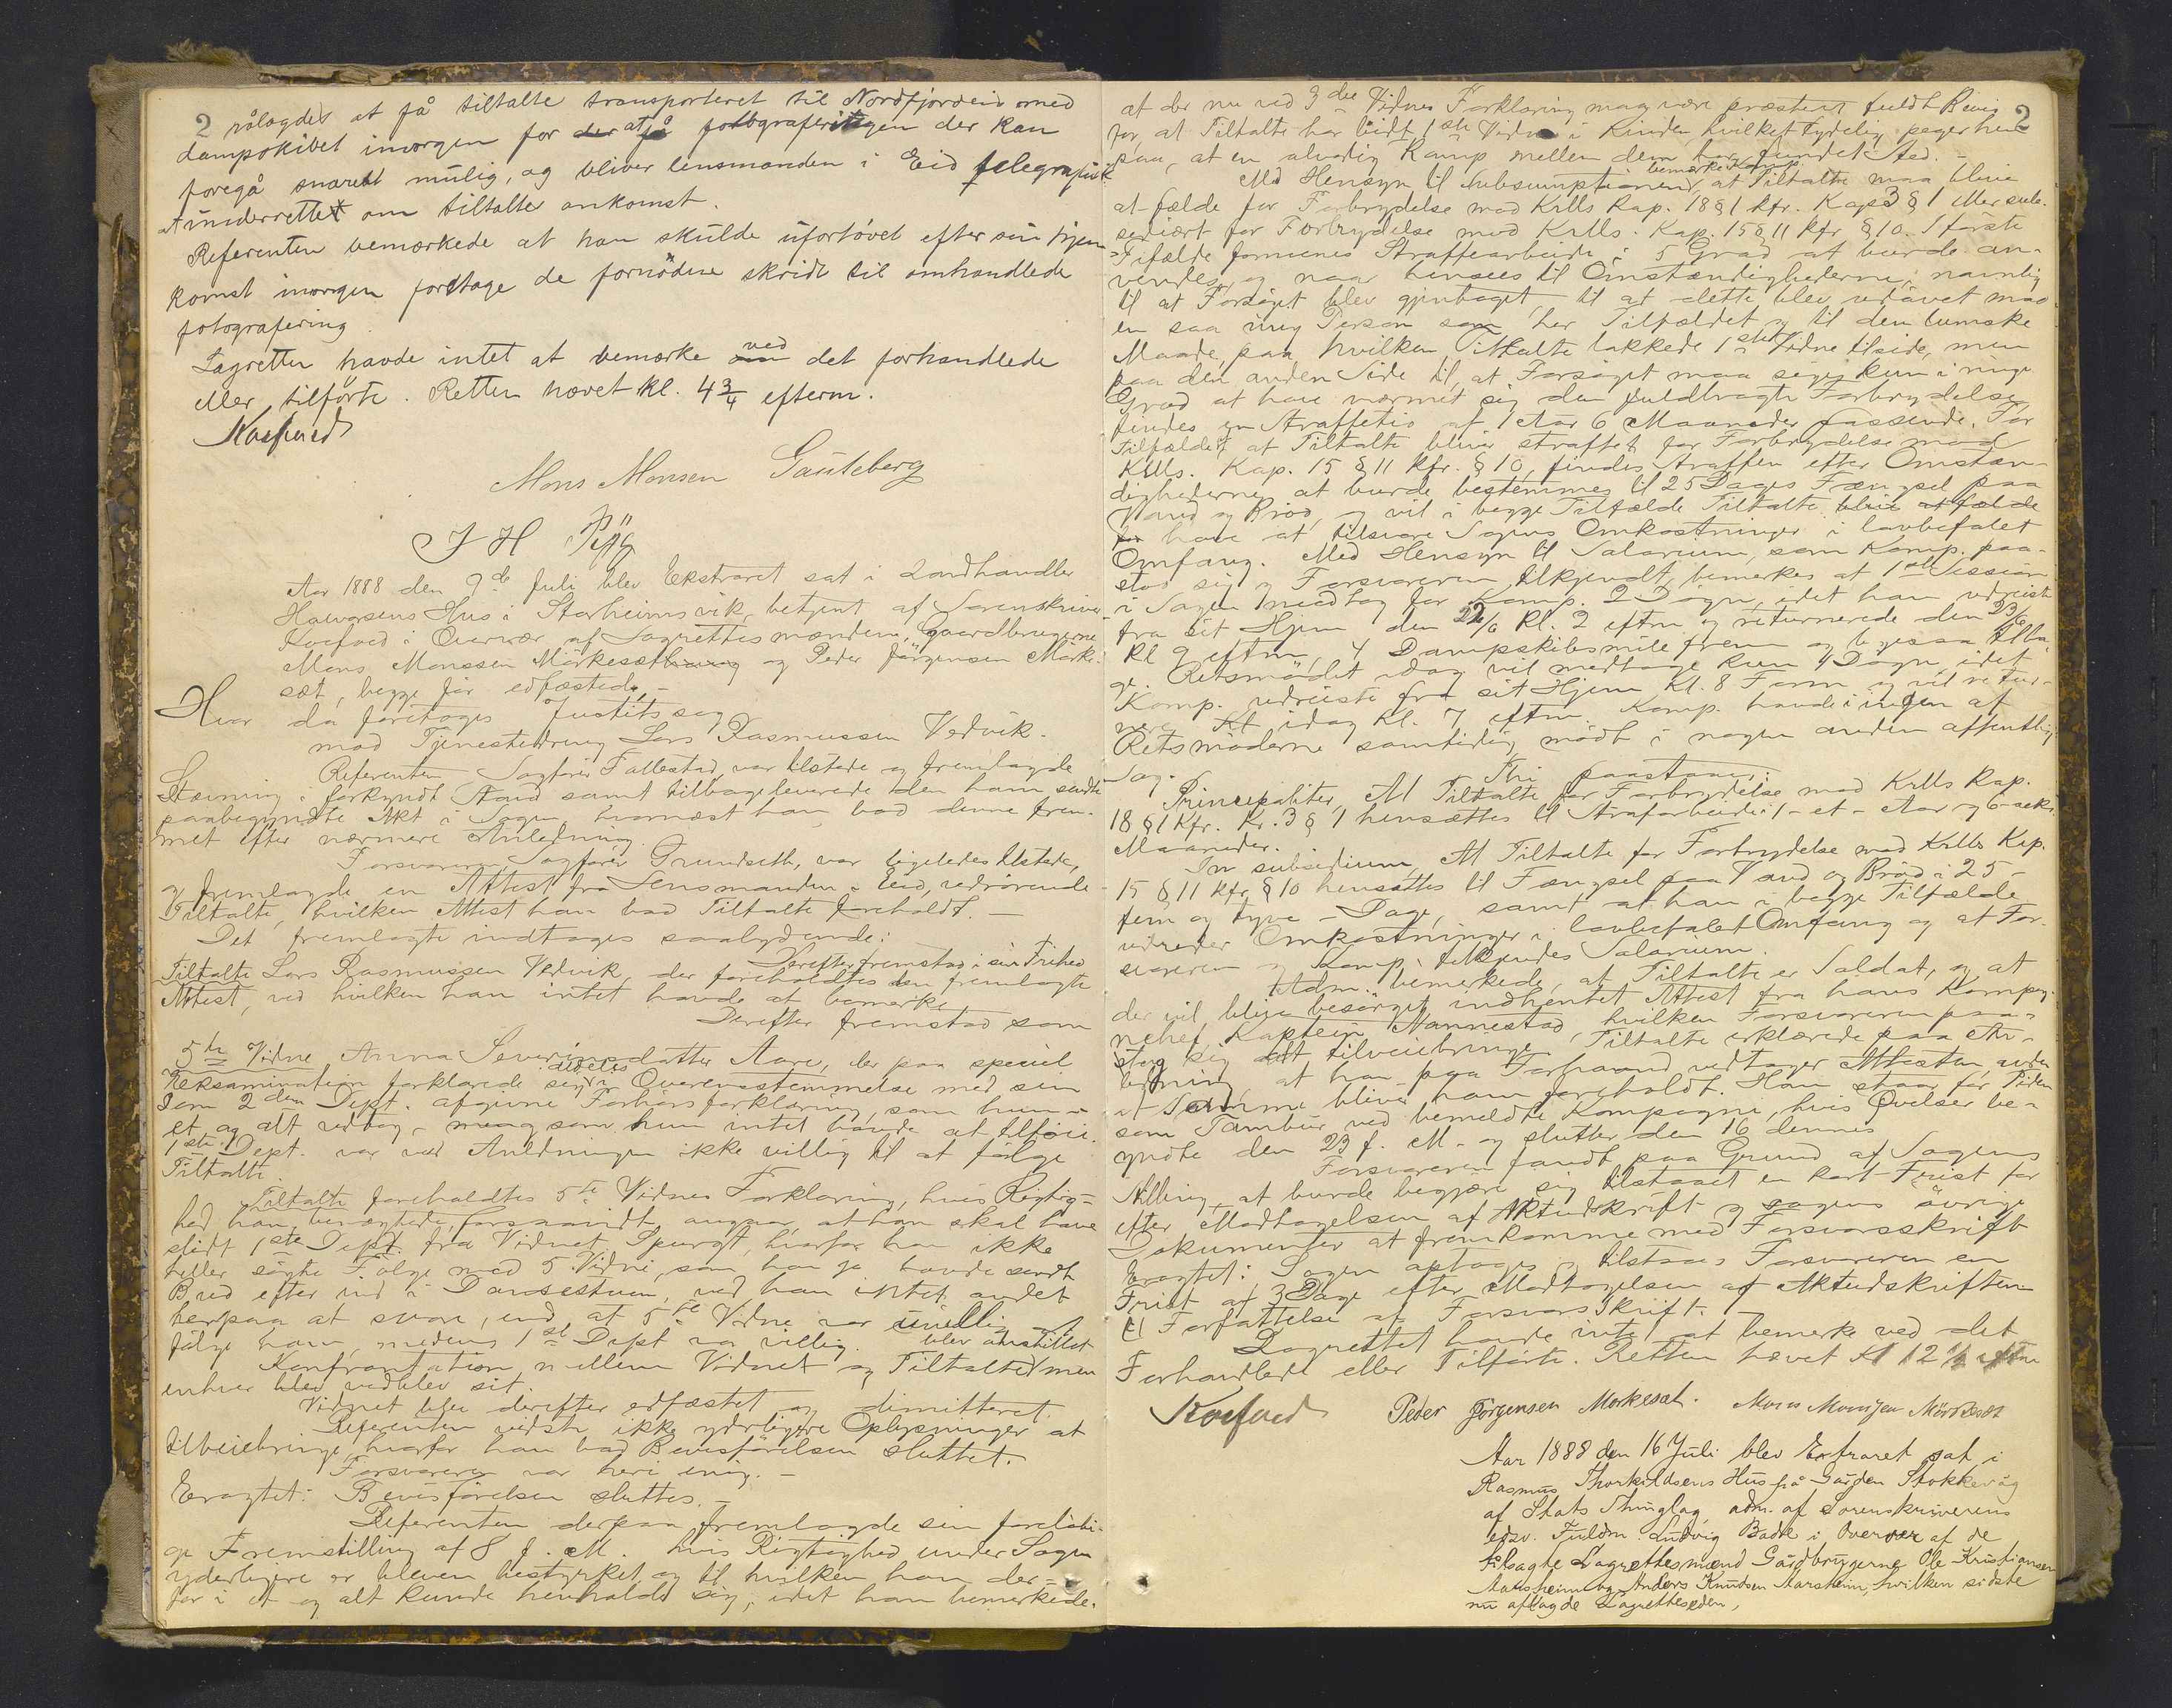 2 pålagdes at få tiltalte transporteret til Nordfjordeid med
dampskibet imorgen for at få fotograferingen der kan
foregå snarest mulig, og bliver lensmanden i Eid telegrafisk
at underrette om tiltaltes ankomst.
Referenten bemærkede at han skulde ufortövet efter sin hjem-
komst imorgen foretage de fornödne skridt til omhandlede
fotografering.
Lagretten havde intet at bemærke ved det forhandlede
eller tilförte. Retten hævet kl. 4 3/4 efterm.
Koefoed
Mons Monsen Gauteberg
J H
Aar 1888 den 9de Juli blev Ekstraret sat i Landhandler
Halvorsens Hus i Starheimsvik, betjent af Sorenskriver
Koefoed i Overvær af Lagrettesmændene, Gaardbrugerne
Mons Monssen Mörkesæt og Peder Jörgensen Mörke-
sæt, begge för edfæstede. -
Hvor da foretoges Justitssag
mod Tjenestedreng Lars Rasmussen Vedvik.
Referenten, Sagförer Fallestad, var tilstede og fremlagde
Stævning i forkyndt Stand samt tilbageleverede den ham sendte
paabegyndte Akt i Sagen, hvornæst han bad denne frem-
met efter nærmere Anledning.
Forsvareren, Sagförer Grundseth, var ligeledes tilstede,
og fremlagde en Attest fra Lensmanden i Eid, vedrörende
Tiltalte, hvilken Attest han bad Tiltalte foreholdt. -
Det fremlagte indtages saalydende:
Derefter fremstod i sin Frihed
Tiltalte Lars Rasmussen Vedvik, der foreholdtes den fremlagte
Attest, ved hvilken han intet havde at bemerke.
Derefter fremstod som
5te Vidne Anna Severinsdatter Aare, der paa speciel
Eksamination forklarede sig aldeles i Overensstemmelse med sin
som 2den Dept. afgivne Forhörsforklaring, som hun i
et og alt vedtog, - som hun intet havde at tilföie.
1ste Dept. var ved Anledningen ikke villig til at fölge
Tiltalte.
Tiltalte foreholdtes 5te Vidnes Forklaring, hvis Rigtig-
hed han benegtede, forsaavidt angaar, at han skal have
slidt 1ste Dept. fra Vidnet. Spurgt, hvorfor han ikke
heller sögte Fölge med 5 Vidne, som han jo havde sendt
Bud efter ind i Dansestuen, ved han intet andet
herpaa at svare, end at 5te Vidne var uvillig at
fölge ham, medens 1ste Dept var villig.
Konfrontation mellem Vidnet og Tiltalte blev anstillet men
enhver blev vedblev sit.
Vidnet blev derefter edfæstet og dimitteret.
Referenten vidste ikke yderligere Oplysninger at
tilveiebringe, hvorfor han bad Bevisförelsen sluttet.
Forsvareren var heri enig. -
Eragtet: Bevisförelsen sluttes. -
Referenten derpaa fremlagde sin foreløbi-
ge Fremstilling af 8 d. M. hvis Rigtighed under Sagen
yderligere er bleven bestyrket, og til hvilken han der-
for i et og alt kunde henholde sig, idet han bemerkede.
2
at der nu ved 3die Vidnes Forklaring maa være præsteret fuldt Bevis
for, at Tiltalte har bidt 1ste Vidne i Kinden, hvilket tydelig peger hen
paa, at en alvorlig Kamp mellem dem har fundet Sted. -
Med Hensyn til Subsumptionen bemerkede Komp. at Tiltalte maa blive
at fælde for Forbrydelse mod Krlls Kap. 18 § 1 kfr. Kap 3 § 1 eller sub-
sidiært for Forbrydelse mod Krlls. Kap. 15 § 11 kfr § 10. I förste
Tilfælde formenes Straffearbeide i 5 Grad at burde an-
vendes, og naar hensees til Omstændighederne, navnlig
til at Forsöget blev gjentaget, til at dette blev udövet mod
en saa ung Person som her Tilfældet og til den lumske
Maade, paa hvilken Tiltalte lokkede 1ste Vidne tilside, men
paa den anden Side til, at Forsöget maa siges kun i ringe
Grad at have nærmet sig den fuldbragte Forbrydelse,
findes en Straffetid af 1 Aar 6 Maaneder passende. For
Tilfældet at Tiltalte bliver straffet for Forbrydelse mod
Krlls. Kap. 15 § 11 kfr. § 10, findes Straffen efter Omstæn-
dighederne at burde bestemmes til 25 Dages Fængsel paa
Vand og Bröd, og vil i begge Tilfælde Tiltalte blive at fælde
for have at tilsvare Sagens Omkostninger i lovbefalet
Omfang. Med Hensyn til Salarium, som Komp. paa-
stod sig og Forsvareren tilkjendt, bemerkes at 1ste Session
i Sagen medtog for Komp. 2 Dögn, idet han udreiste
fra sit Hjem den 22/6 Kl. 2 eftm og returnerede den 23/6
Kl 9 eftm, 4 Dampskibsmile frem og ligesaa tilba-
ge. Retsmödet idag vil medtage kun 1 Dögn, idet
Komp. udreiste fra sit Hjem Kl. 8 Form og vil retur-
nere idag Kl. 7 eftm. Komp. havde i ingen af
Retsmöderne samtidig mödt i nogen anden offentlig
Sag.
Thi paastaaes:
Principaliter, At Tiltalte for Forbrydelse mod Krlls Kap.
18 § 1 kfr. Kp. 3 § 1 hensættes til Strafarbeide i 1 - et - Aar og 6 - seks -
Maaneder.
In subsidium, At Tiltalte for Forbrydelse mod Krlls Kap.
15 § 11 kfr § 10 hensættes til Fængsel paa Vand og Bröd i 25 -
fem og tyve - Dage, samt at han i begge Tilfælde
udreder Omkostninger i lovbefalet Omfang og at For-
svareren og Komp. tilkjendes Salarium.
Adm. bemerkede, at Tiltalte er Soldat, og at
der vil blive besörget indhentet Attest fra hans Kompag-
nichef, Kaptein Nannestad, hvilken Forsvareren paa-
tog sig at tilveiebringe. Tiltalte erklærede paa An-
ledning, at han paa Forhaand vedtager Attesten, uden
at samme bliver ham foreholdt. Han staar for Tiden
som Tambur ved bemeldte Kompagni, hvis Övelser be-
gyndte den 23 f. M. og slutter den 16 dennes
Forsvareren fandt paa Grund af Sagens
Stilling, at burde begjære sig tilstaaet en kort Frist for
efter Modtagelsen af Aktudskrift og sagens övrige
Dokumenter at fremkomme med Forsvarsskrift
Eragtet: Sagen optages og tilstaaes Forsvareren en
Frist af 3 Dage efter Modtagelsen af Aktudskriften
til Forfattelse af Forsvarsskrift.
Lagrettet havde intet at bemerke ved det
Forhandlede eller Tilförte. Retten hævet Kl 12 1/2 eftm
Koefoed Peder Jörgensen Morkesat. Mons Monsen Mörkesæt
Aar 1888 den 16 Juli blev Extraret sat i
Rasmus Thorkildsens Hus på Gården Stokkevåg
af Stats Thinglag, adm. af Sorenskriverens
edsv. Fuldm. Ludvig Badte i Overvær af de
tilsagte Lagrettesmænd Gårdbrugerne Ole Kristiansen
Aarsheim og Anders Knudsen Aarsheim, hvilken sidste
nu aflagde Lagretteseden,